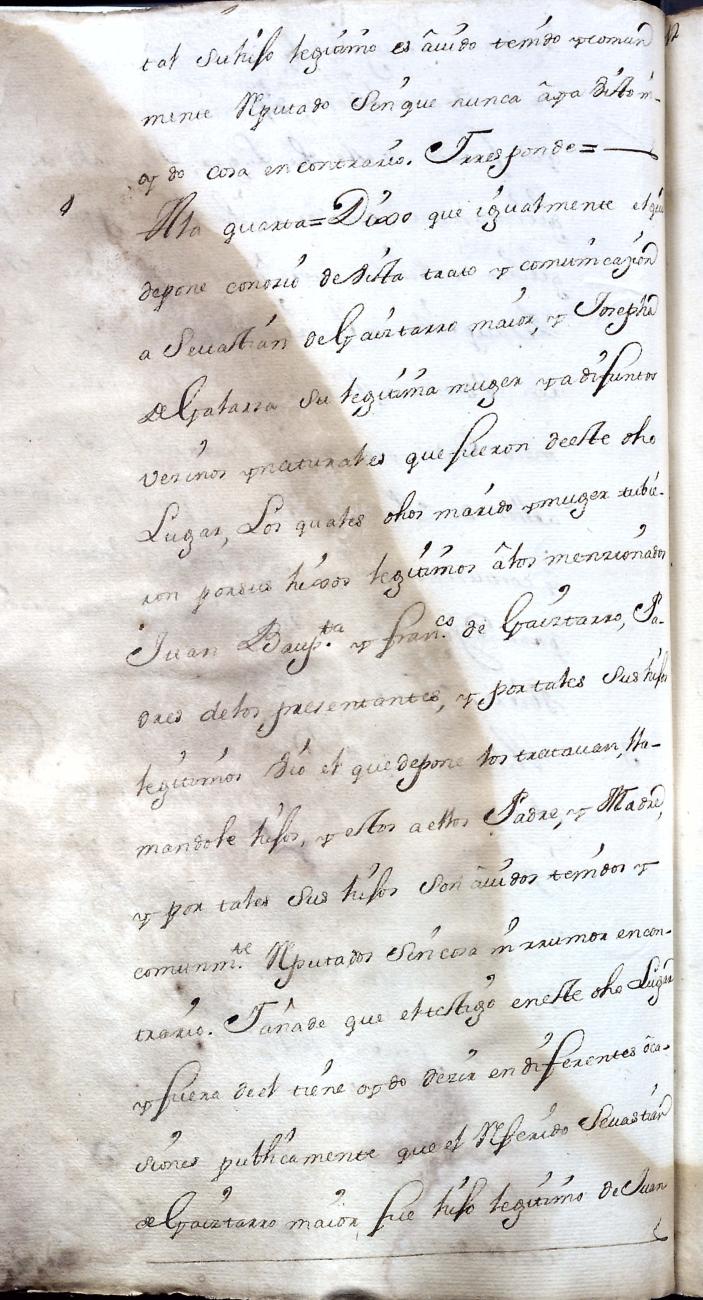 tal su hijo legitimo es âuido tenido y comun
mente Reputado sin que nunca âya visto ni
oydo cosa en contrario. Yrresponde=
4 A la quarta= Dixo que igualmente el que
depone conozio de vista trato y comunicazion
a Seuastian de Goiztarro maior, y Josepha
de Galarza su legitima muger ya difuntos
vezinos y naturales que fueron deeste dho
Lugar, Los quales dhos marido y muger tubie-
ron por sus hixos legitimos âlos menzionados
Juan Baupta y Franco de Goiztarro, Pa-
dres delos presentantes, y por tales sus hijos
legitimos vio el que depone los tratauan, lla-
mandole hijos, y ellos a ellos Padre, y Madre,
y por tales sus hijos son âuidos tenidos y
comunmte Reputados sin cosa ni rrumor encon-
trario. Yanade que el testigo eneste dho Lugar
y fuera deel tiene oydo dezir en diferentes oca-
siones publicamente que el Referido Seuastian
de Goiztarro maior, fue hijo legitimo de Juan